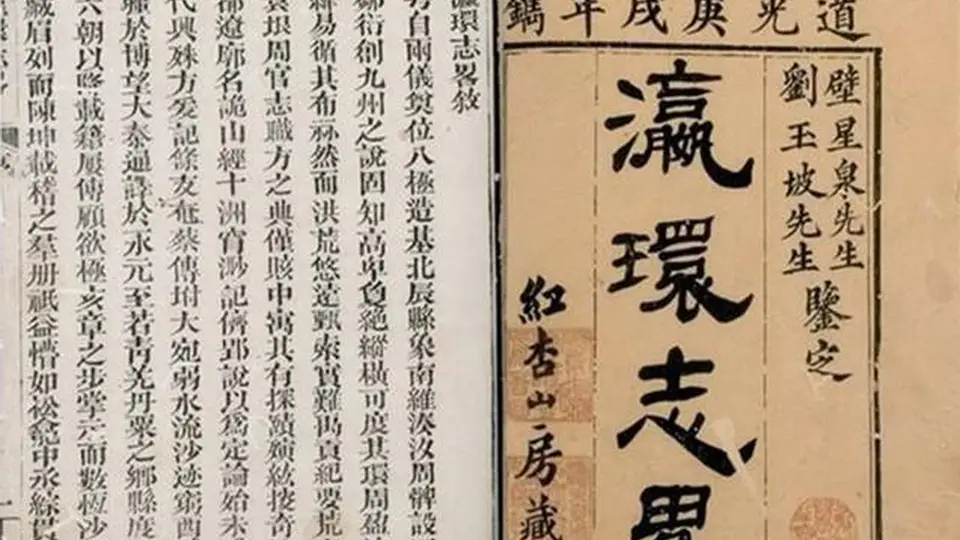 道光庚戌年鐫
壁星泉先生
劉玉坡先生
鑒定
瀛環志畧
紅杏山房藏
瀛環志畧敘
自兩儀奠位八極造基北辰縣象南維湊汝周髀設
鄒衍創九州之說固知高卑負絕縱橫可度其環周盈
易循其布祘然而洪荒悠遠甄索實難禹貢紀要荒
垠周官志職方之典僅賅中㝢其有探賾紘接奇
都遼廓名詭山經十洲窅渺記儕郢說以爲定論始末
代興殊方爰記條支奄蔡傳坿大宛弱水流沙迹窮西
於博望大秦通譯於永元至若靑羌丹粟之鄉縣度
六朝以降載籍屢傳顧欲極亥章之步掌示而數恆沙
眉列而陳坤載稽之羣册祇益懵如松龕中丞綜貫